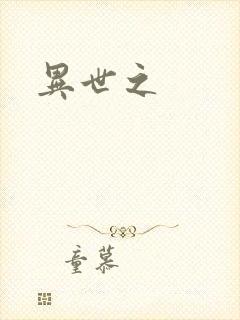 異世之
童慕